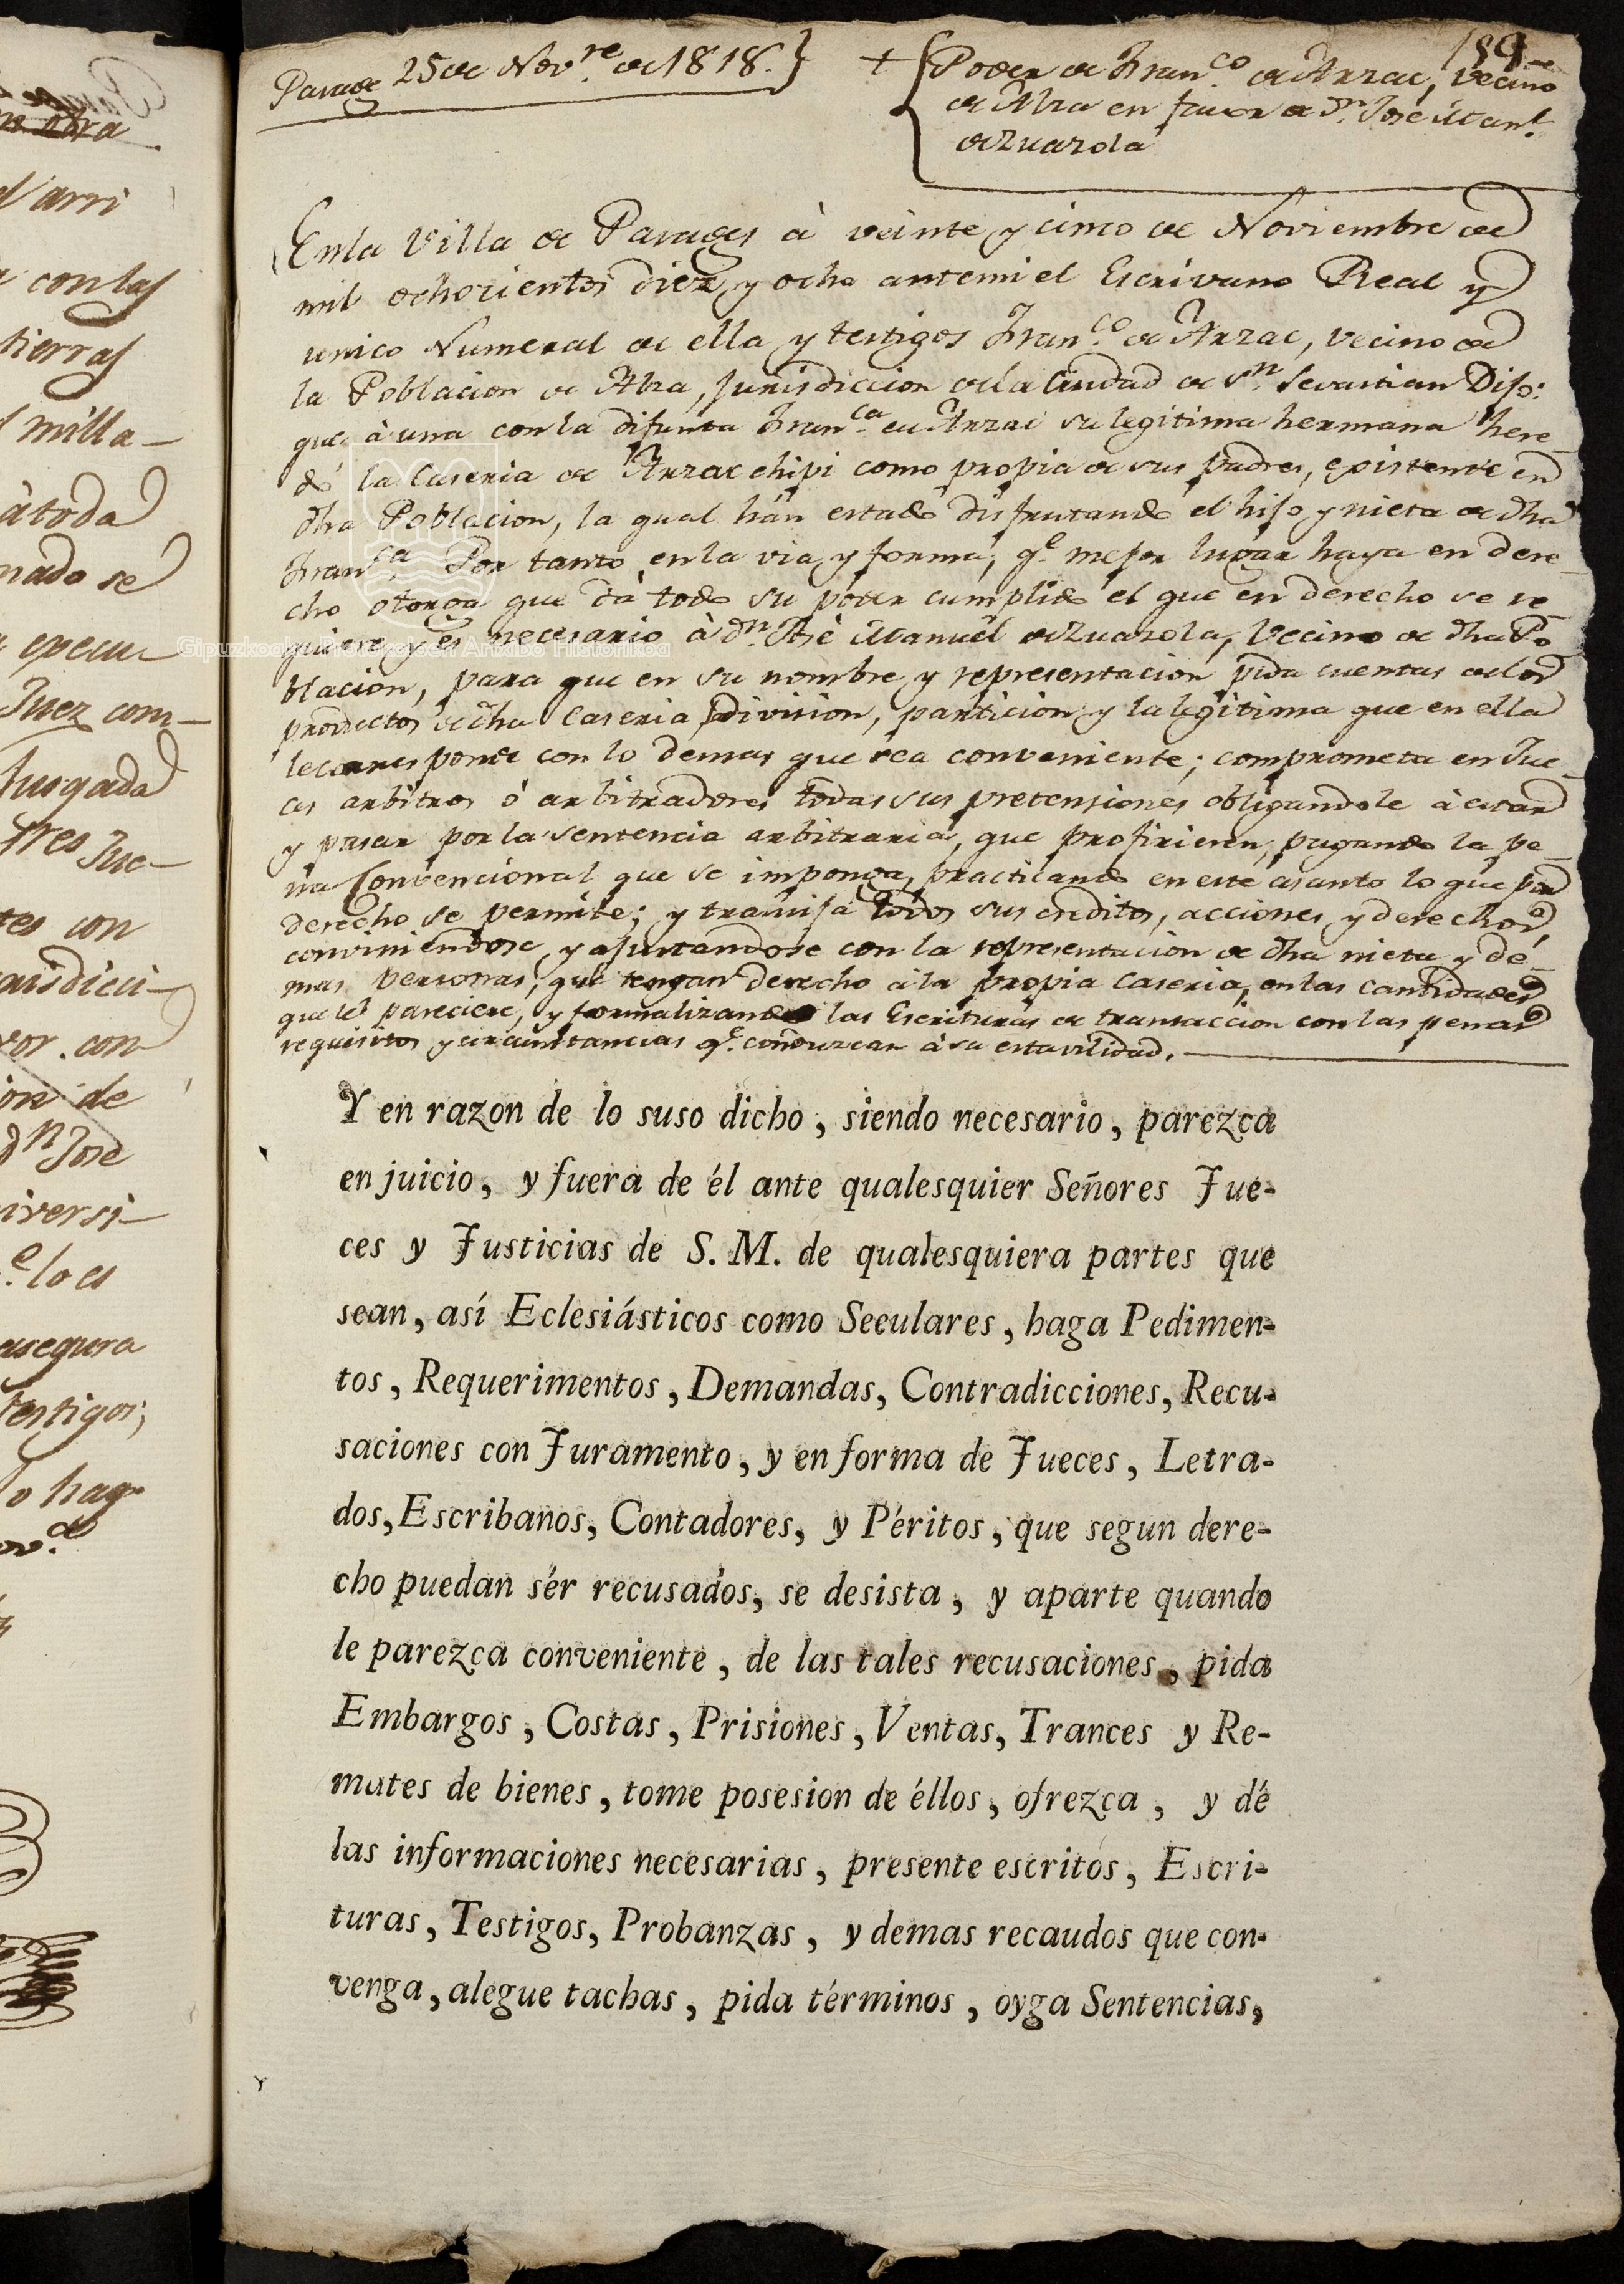 189
Pasage 25 de Nov.re de 1818.}
+ { Poder de Fran.co de Arzac, vecino
de Alza en favor de Dn. José Man.l
de Zuazola
En la Villa de Pasages à veinte y cinco de Noviembre de
mil ochocientos diez y ocho ante mi el Escrivano Real y
unico Numeral de ella y testigos Fran.co de Arzac, vecino de
la Poblacion de Alza, Jurisdiccion de la Ciudad de Sn. Sevastian Dijo:
que à una con la difunta Fran.ca de Arzac su legitima hermana here-
dó la Caseria de Arzac chipi como propia de sus padres, existente en
dha Poblacion, la qual hán estado disfrutando el hijo y nieta de dha
Fran.ca Por tanto en la via y forma, q.e mejor lugar haya en dere-
cho otorga que dá todo su poder cumplido el que en derecho se re-
quiere y es necesario à Dn. José Manuel de Zuazola, Vecino de dha Po
blacion, para que en su nombre y representacion pida cuentas de los
productos de dha Caseria, division, particion y la legitima que en ella
le corresponde con lo demas que sea conveniente; comprometa en Jue-
ces arbitros ó arbitradores todas sus pretensiones obligandole à estar
y pasar por la sentencia arbitraria, que profirieren, pagando la pe-
na Convencional que se imponga, practicando en este asunto lo que por
derecho se permite; y transija todos sus creditos, acciones, y derechos,
conviniendose, y ajustandose con la representacion de dha nieta y de-
mas personas, que tengan derecho à la propia Caseria, en las cantidades
que le pareciere, y formalizando las Escrituras de transaccion con las penas
requisitos y circunstancias q.e conduzcan à su estavilidad.
Y en razon de lo suso dicho, siendo necesario, parezca
en juicio, y fuera de él ante qualesquier Señores Jue-
ces y Justicias de S. M. de qualesquiera partes que
sean, así Eclesiásticos como Seculares, haga Pedimen-
tos, Requerimentos, Demandas, Contradicciones, Recu-
saciones con Juramento, y en forma de Jueces, Letra-
dos, Escribanos, Contadores, y Péritos, que segun dere-
cho puedan sér recusados, se desista, y aparte quando
le parezca conveniente, de las tales recusaciones, pida
Embargos, Costas, Prisiones, Ventas, Trances y Re-
mates de bienes, tome posesion de éllos, ofrezca, y dé
las informaciones necesarias, presente escritos, Escri-
turas, Testigos, Probanzas, y demas recaudos que con-
venga, alegue tachas, pida términos, oyga Sentencias,